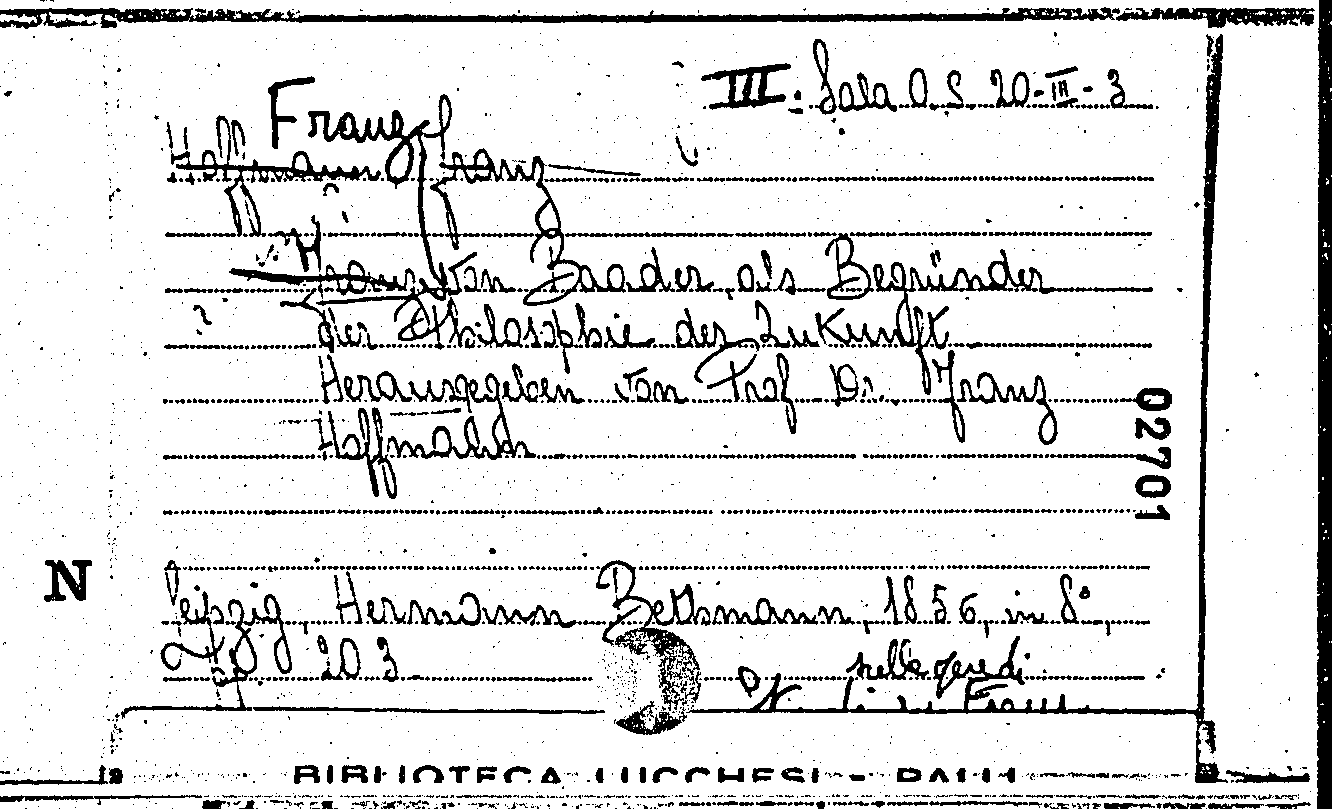 III. Sala O.S. 20-III-3
Franz
Hoffmann Franz
Franz von Baader als Begründer
der Philosophie der Zukunft
Herausgegeben von Prof Dr. Franz
Hoffmann
02701
N
Leipzig, Hermann Bethmann, 1856, in 8°,
pp 203
nelle opere di
BIBLIOTECA LUCCHESI - PALLI